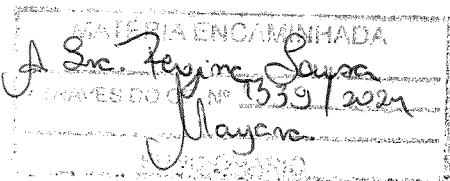 MATÉRIA ENCAMINHADA
A Sra. Regina Sousa
ATRAVÉS DO Nº 1539/2024
Mayara